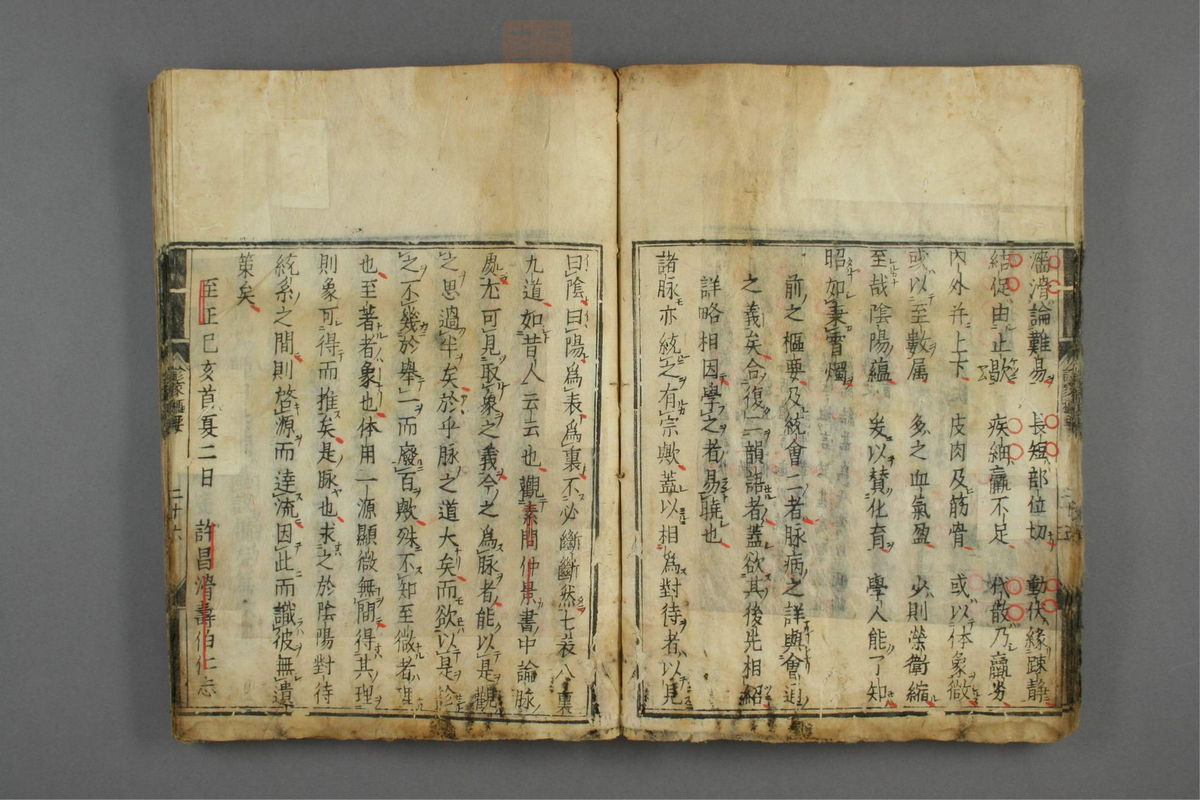 濇滑論難易 長短部位切 動伏緣踈靜
結促由止歇 疾細羸不足 代散乃羸劣
內外并上下 皮肉及筋骨 或以体象微
或以至數属 多之血氣盈 少則榮衛縮
至哉陰陽蘊 爰以賛化育 學人能了知
昭如秉宵爥
前之樞要及統會二者脉病之詳與會通
之義矣今復二韻語者蓋欲其後先相紹
詳略相因學之者易曉也
諸脉亦統之有宗歟蓋以相為對待者以見
曰陰曰陽為表為裏不必斷斷然七表八裏
九道如昔人云云也觀素問仲景書中論脉
處尤可見取象之義今之為脉者能以是觀
之思過半矣於乎脉之道大矣而欲以是
之不幾於舉一而廢百歟殊不知至微者理
也至著者象也体用一源顯微無間得其理
則象可得而推矣是脉也求之於陰陽對待
統系之間則啓源而達流因此而識彼無遺
策矣
至正己亥首夏二日 許昌滑壽伯仁志
二十六